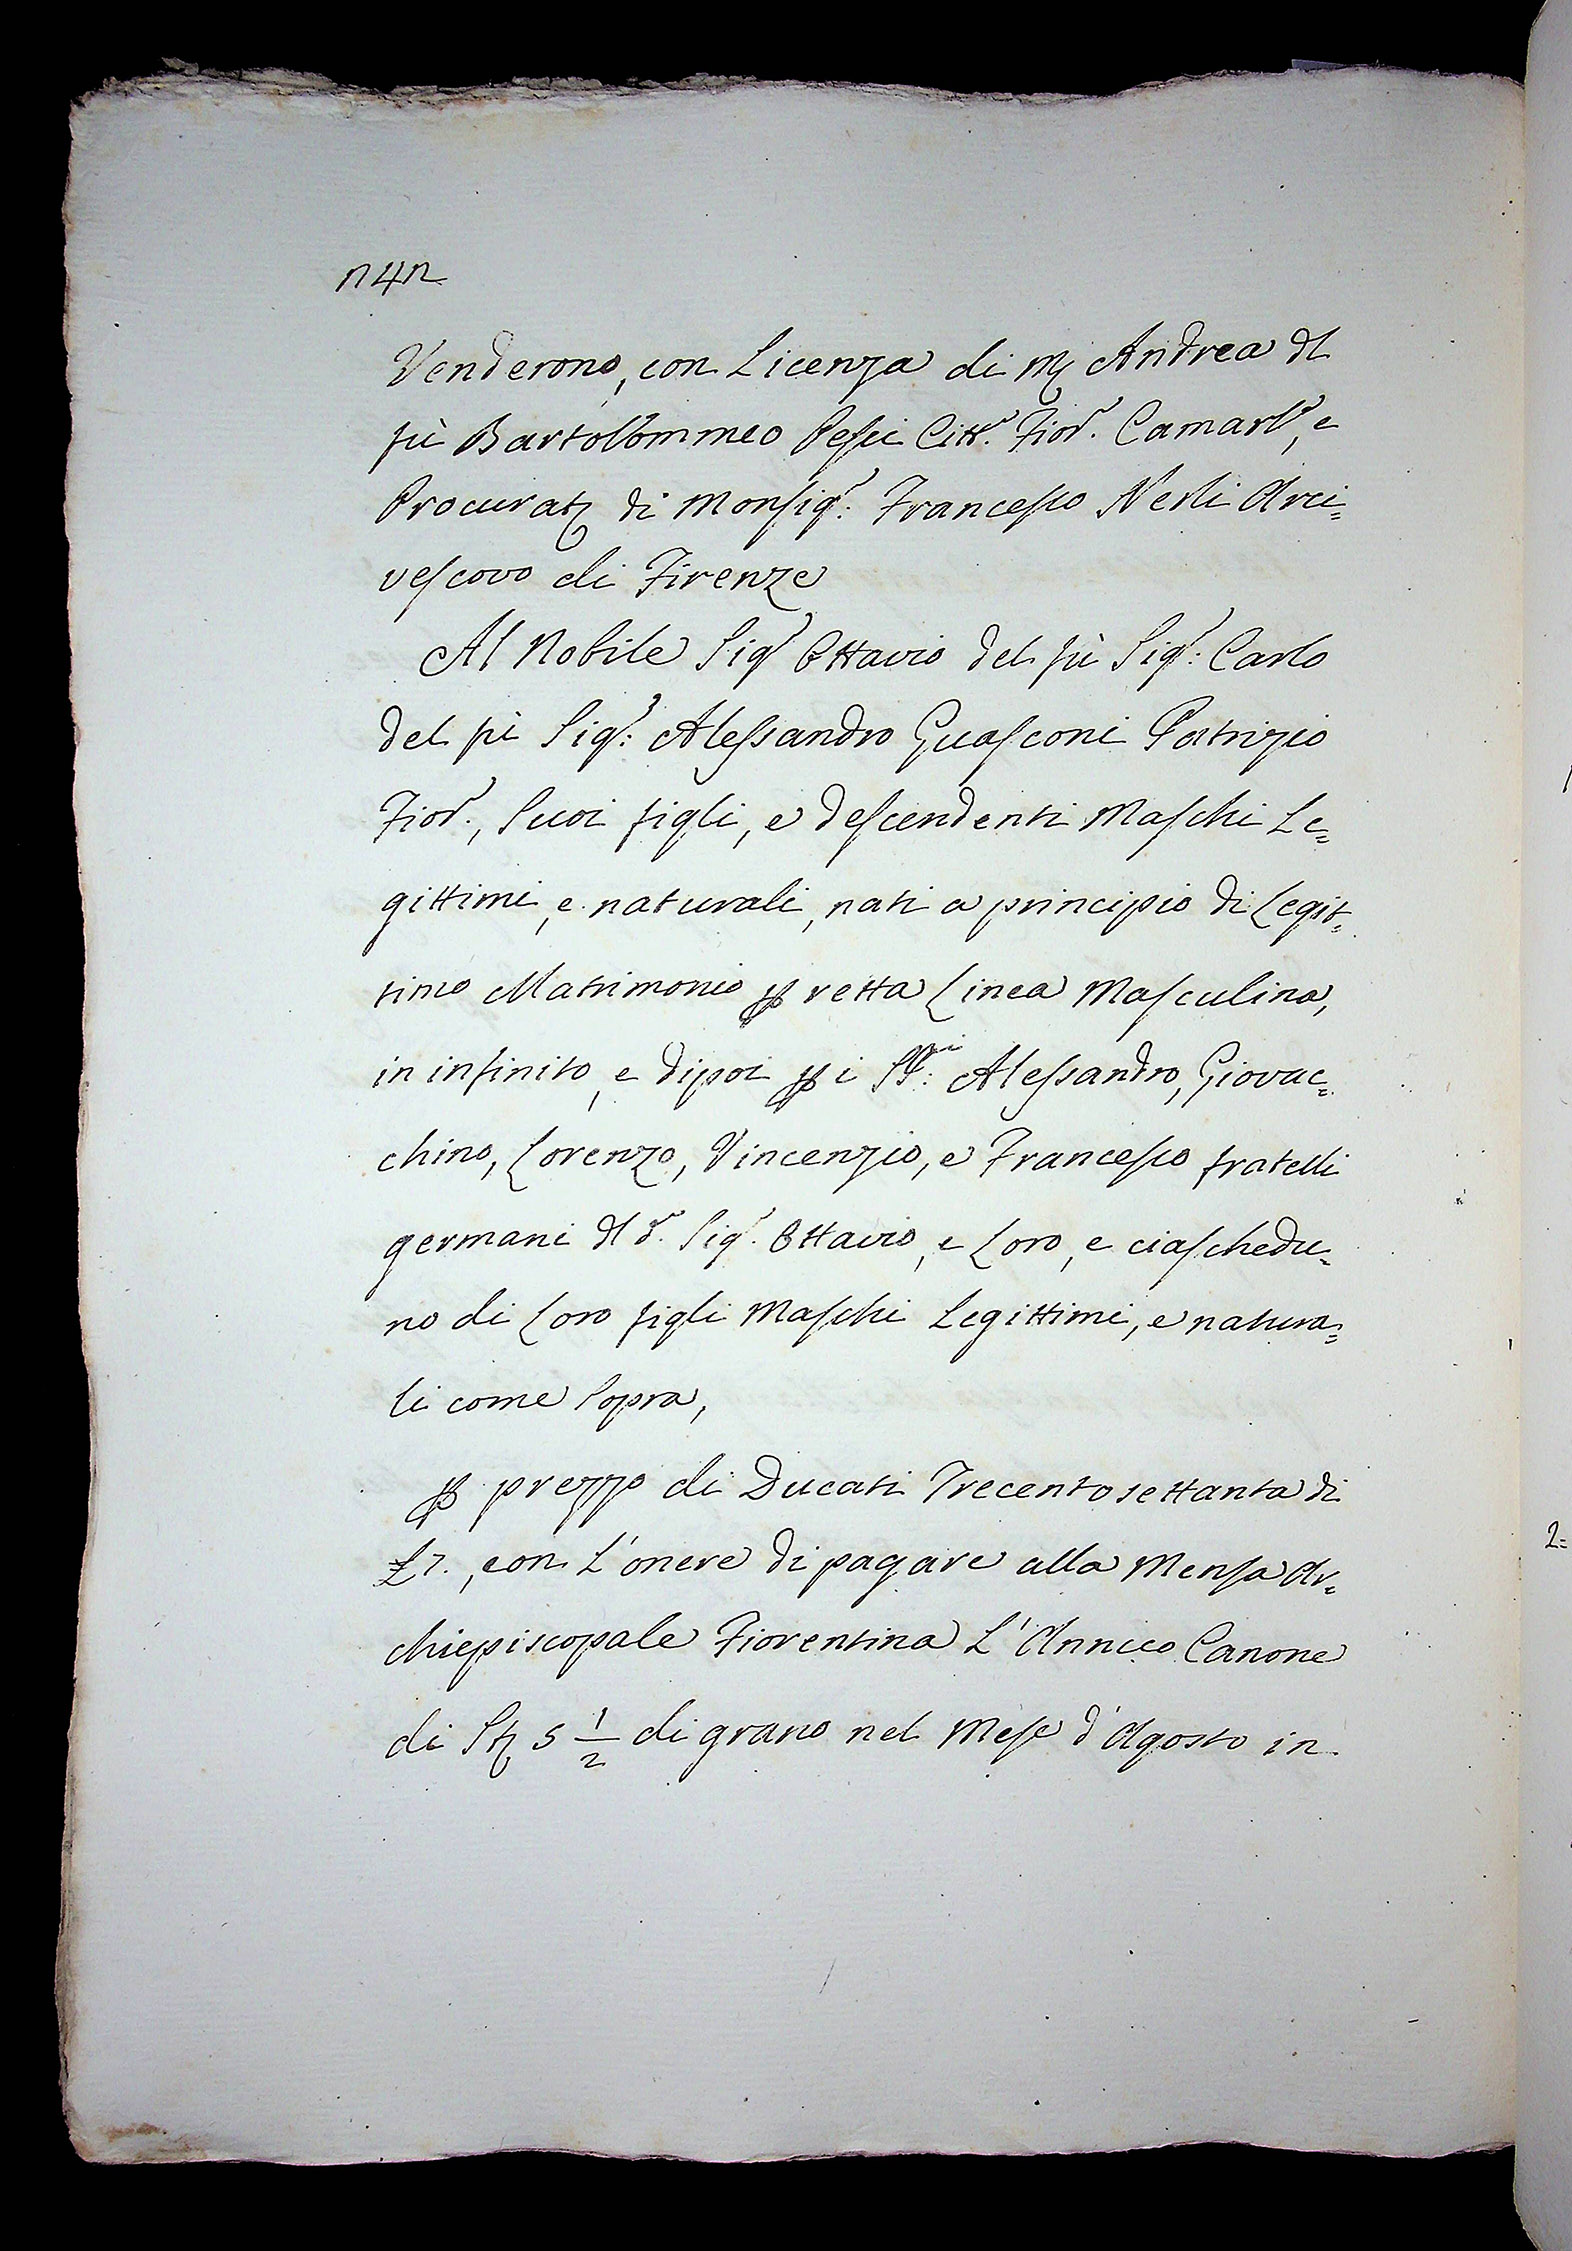 n4n
Venderono, con Licenza di M. Andrea dl
fù Bartolommeo Pesci Citt.º Fior.º Camarl.º, e
Procurat.e di Monsig.r: Francesco Nerli Arci=
vescovo di Firenze
Al Nobile Sig.r Ottavio del fù Sig.r: Carlo
del fù Sig.r: Alessandro Guasconi Patrizio
Fior.º, Suoi figli, e descendenti Maschi Le=
gittimi, e naturali, nati a principio di Legit=
timo Matrimonio p retta Linea Masculina,
in infinito, e dipoi p i SS.ri: Alessandro, Giovac=
chino, Lorenzo, Vincenzio, e Francesco fratelli
germani dl d.º Sig.r Ottavio, e Loro, e ciaschedu=
no di Loro figli Maschi Legittimi, e natura=
li come Sopra,
p prezzo di Ducati Trecento settanta di
£ 7., con L'onere di pagare alla Mensa Ar=
chiepiscopale Fiorentina L'Annuo Canone
di St. 5 1/2 di grano nel Mese d'Agosto in
2=